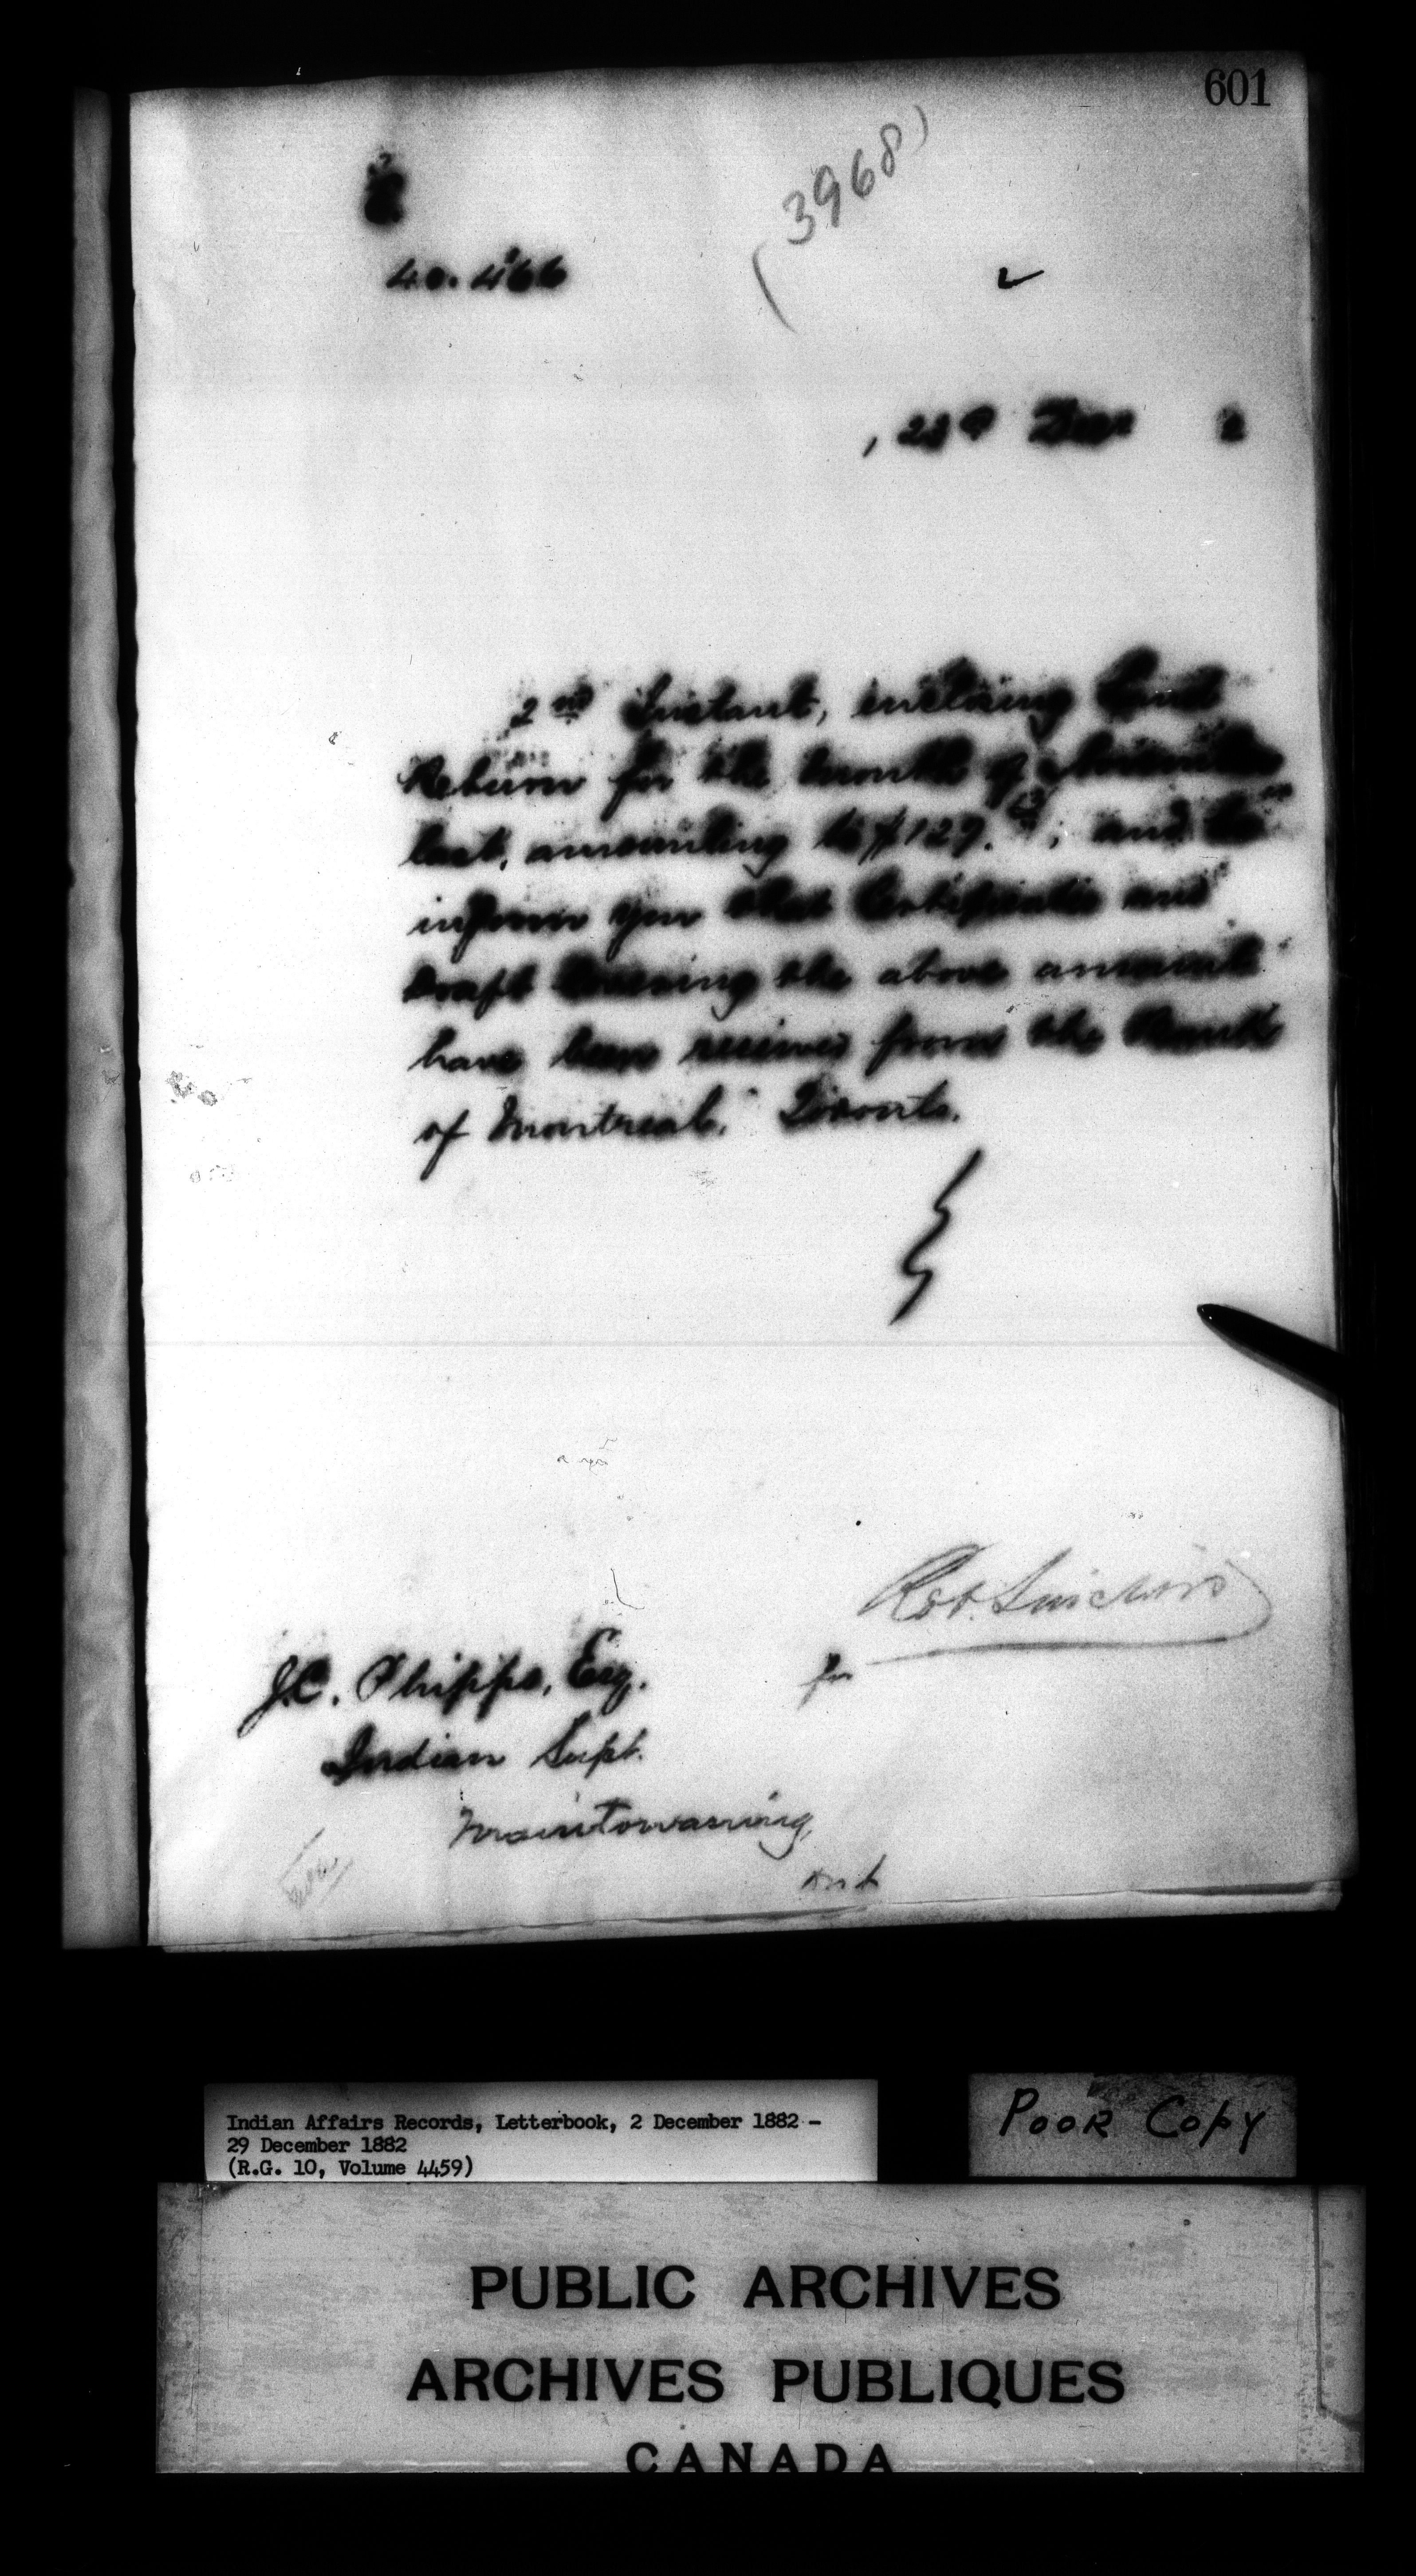 601
(3968)
40.466
Dec 2
2nd Instant, enclosing Land
Return for the month of November
last, amounting to $129. ; and to
inform you that Certificate and
draft covering the above amount
have been received from the Bank
of Montreal, Toronto.
Rob. Sinclair
for
J.C. Phipps, Esq.
Indian Supt.
Manitowaning,
Ont
Indian Affairs Records, Letterbook, 2 December 1882 -
29 December 1882
(R.G. 10, Volume 4459)
POOR COPY
PUBLIC ARCHIVES
ARCHIVES PUBLIQUES
CANADA